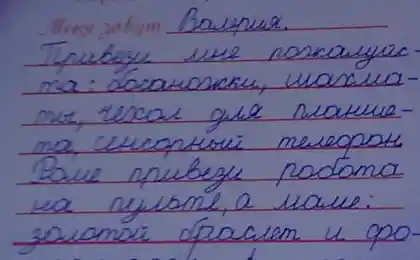 Меня зовут Валерия.
Привези мне пожалуйс-
та: босаножки, шахма-
ты, чехол для планше-
та, сенсорный телефон.
Роме привези робота
на пульте, а маме:
золотой браслет и фо-